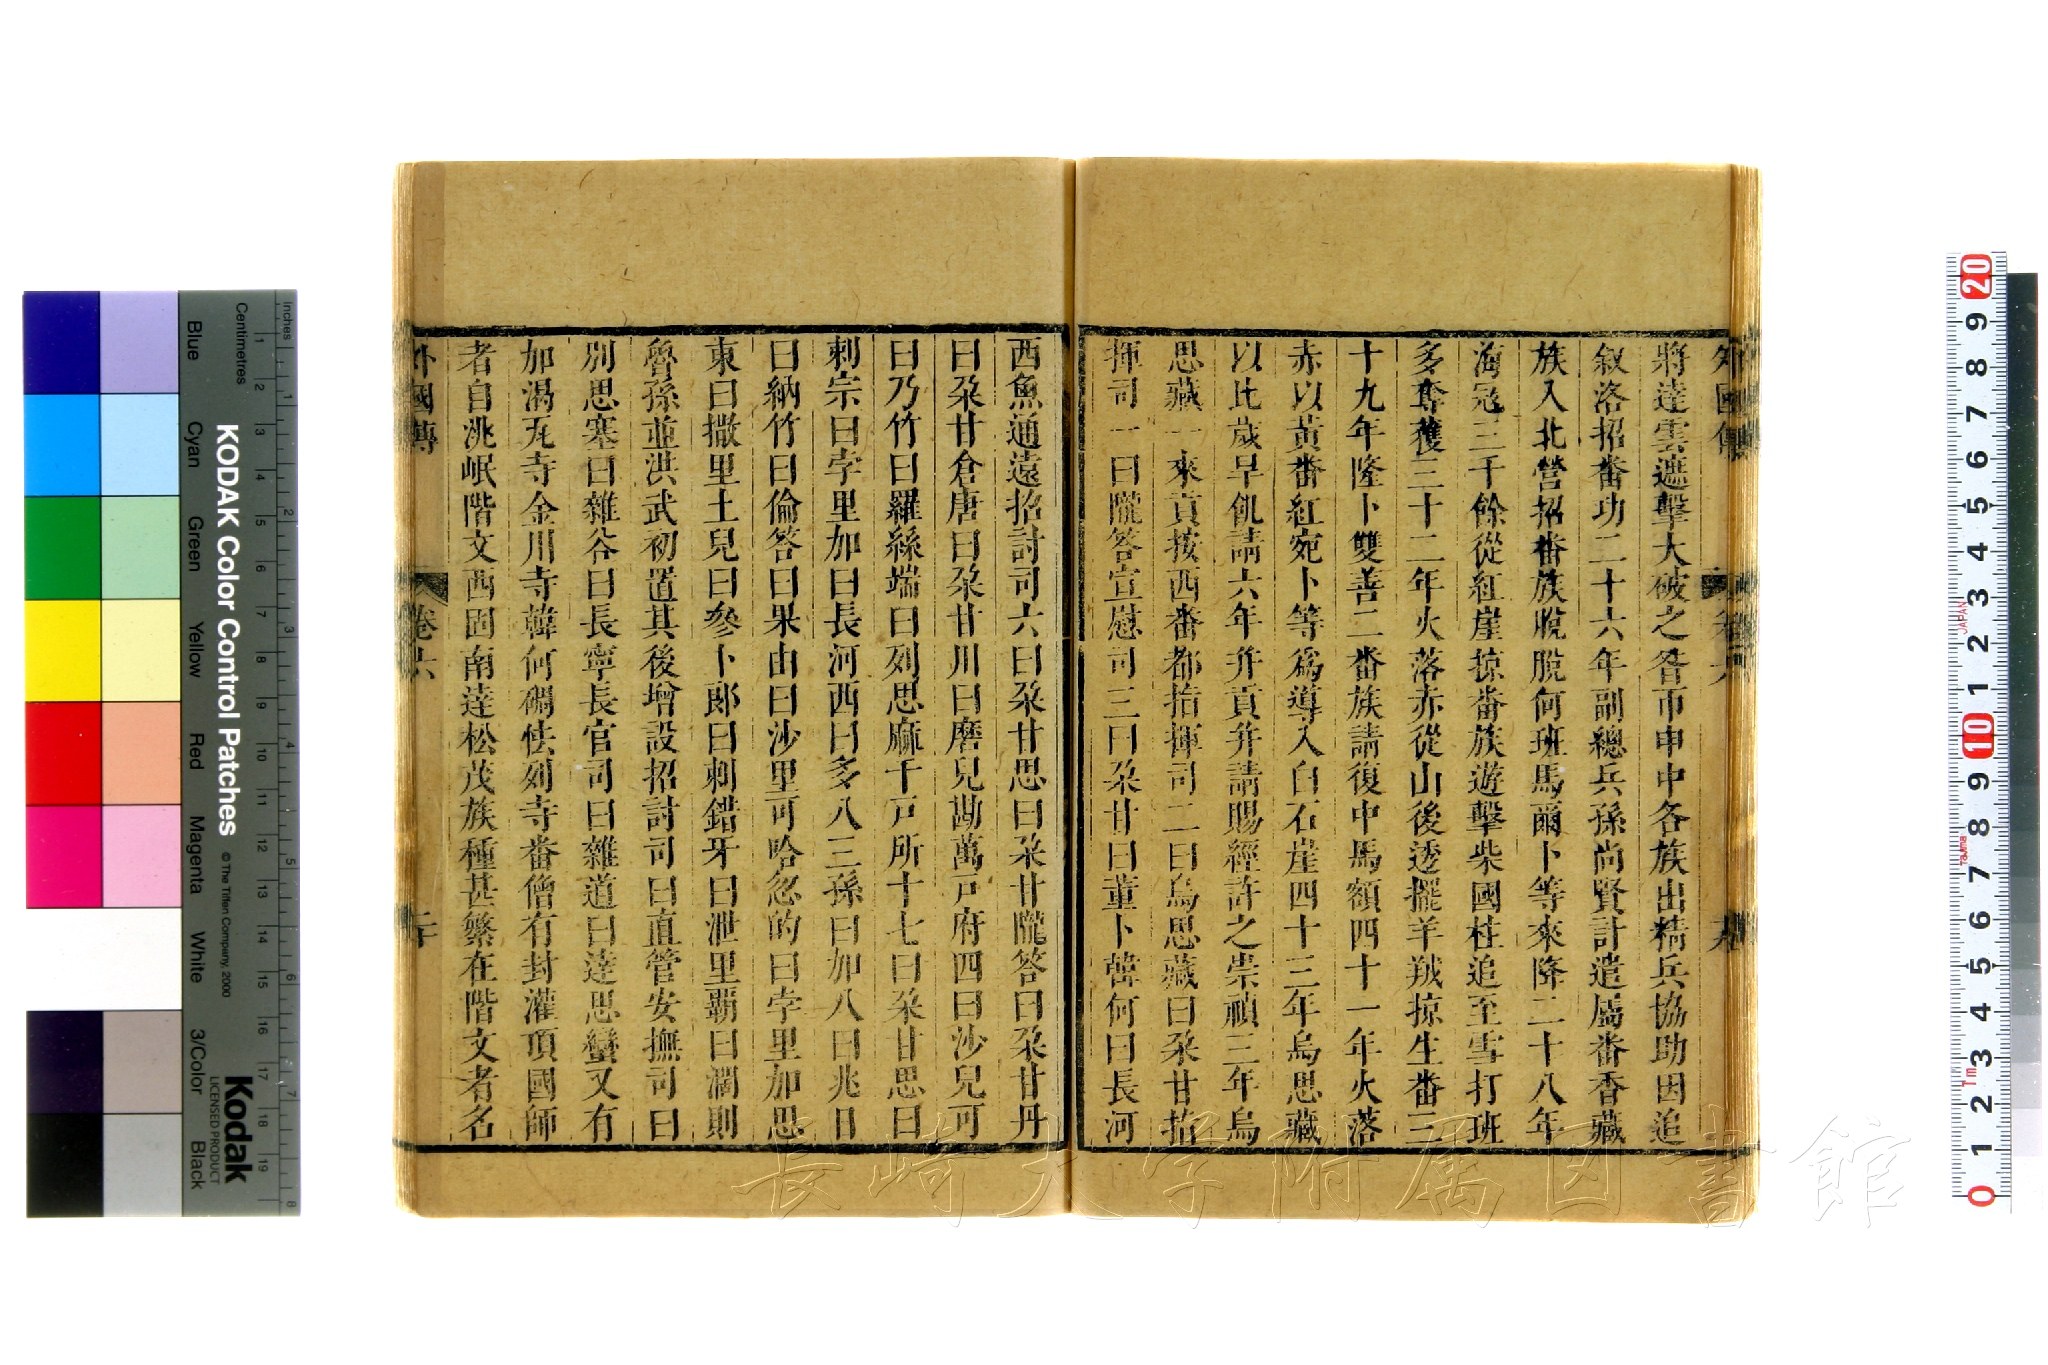 外國傳 卷六
將達雲遮擊大破之咨市申中各族出精兵協助因追
敘洛招番功二十六年副總兵孫尚賢計遣屬番香藏
族入北營招番族脫脫何班馬爾卜等來降二十八年
海寇三千餘從紅崖掠番族遊擊柴國柱追至雪打班
多奪獲三十二年火落赤從山後透擺羊羢掠生番三
十九年隆卜雙善二番族請復中馬額四十一年火落
赤以黃番紅宛卜等爲導入白石崖四十三年烏思藏
以比歲早飢請六年并貢并請賜經許之崇禎三年烏
思藏一來貢按西番都指揮司二曰烏思藏曰朵甘指
揮司一曰隴答宣慰司三曰朵甘曰董卜韓何曰長河
西魚通遠招討司六曰朵甘思曰朵甘隴答曰朵甘丹
曰朵甘倉唐曰朵甘川曰磨兒勘萬戶府四曰沙兒可
曰乃竹曰羅絲端曰列思麻千戶所十七曰朵甘思曰
剌宗曰孛里加曰長河西曰多八三孫曰加八曰兆日
曰納竹曰倫答曰果由曰沙里可哈忽的曰孛里加思
東曰撒里土兒曰參卜郎曰剌錯牙曰泄里覇曰濶則
魯孫並洪武初置其後增設招討司曰直管安撫司曰
別思塞曰雜谷曰長寧長官司曰雜道曰達思蠻又有
加渴瓦寺金川寺韓何碉怯列寺番僧有封灌頂國師
者自洮岷階文西固南達松茂族種甚繁在階文者名
外國傳 卷六 二十
KODAK Color Control Patches
© The Tiffen Company, 2000
Kodak
LICENSED PRODUCT
Inches
Centimetres
Blue Cyan Green Yellow Red Magenta White 3/Color Black
長崎大学附属図書館